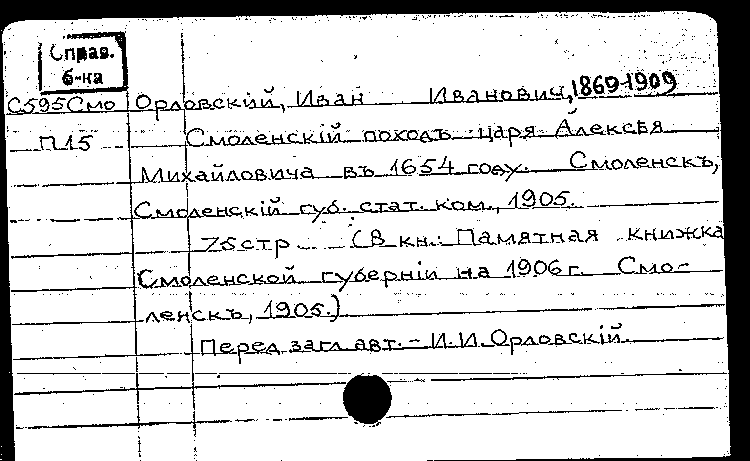 Справ.
б-ка
С595Смо Орловскій, Иван Иванович, 1869-1909
П15 Смоленскій походъ царя Алексѣя
Михайловича въ 1654 году. Смоленскъ,
Смоленскій губ. стат. ком., 1905.
75стр. (В кн.: Памятная книжка
Смоленской губерніи на 1906г. Смо-
ленскъ, 1905.)
Перед загл. авт. - И.И.Орловскій.